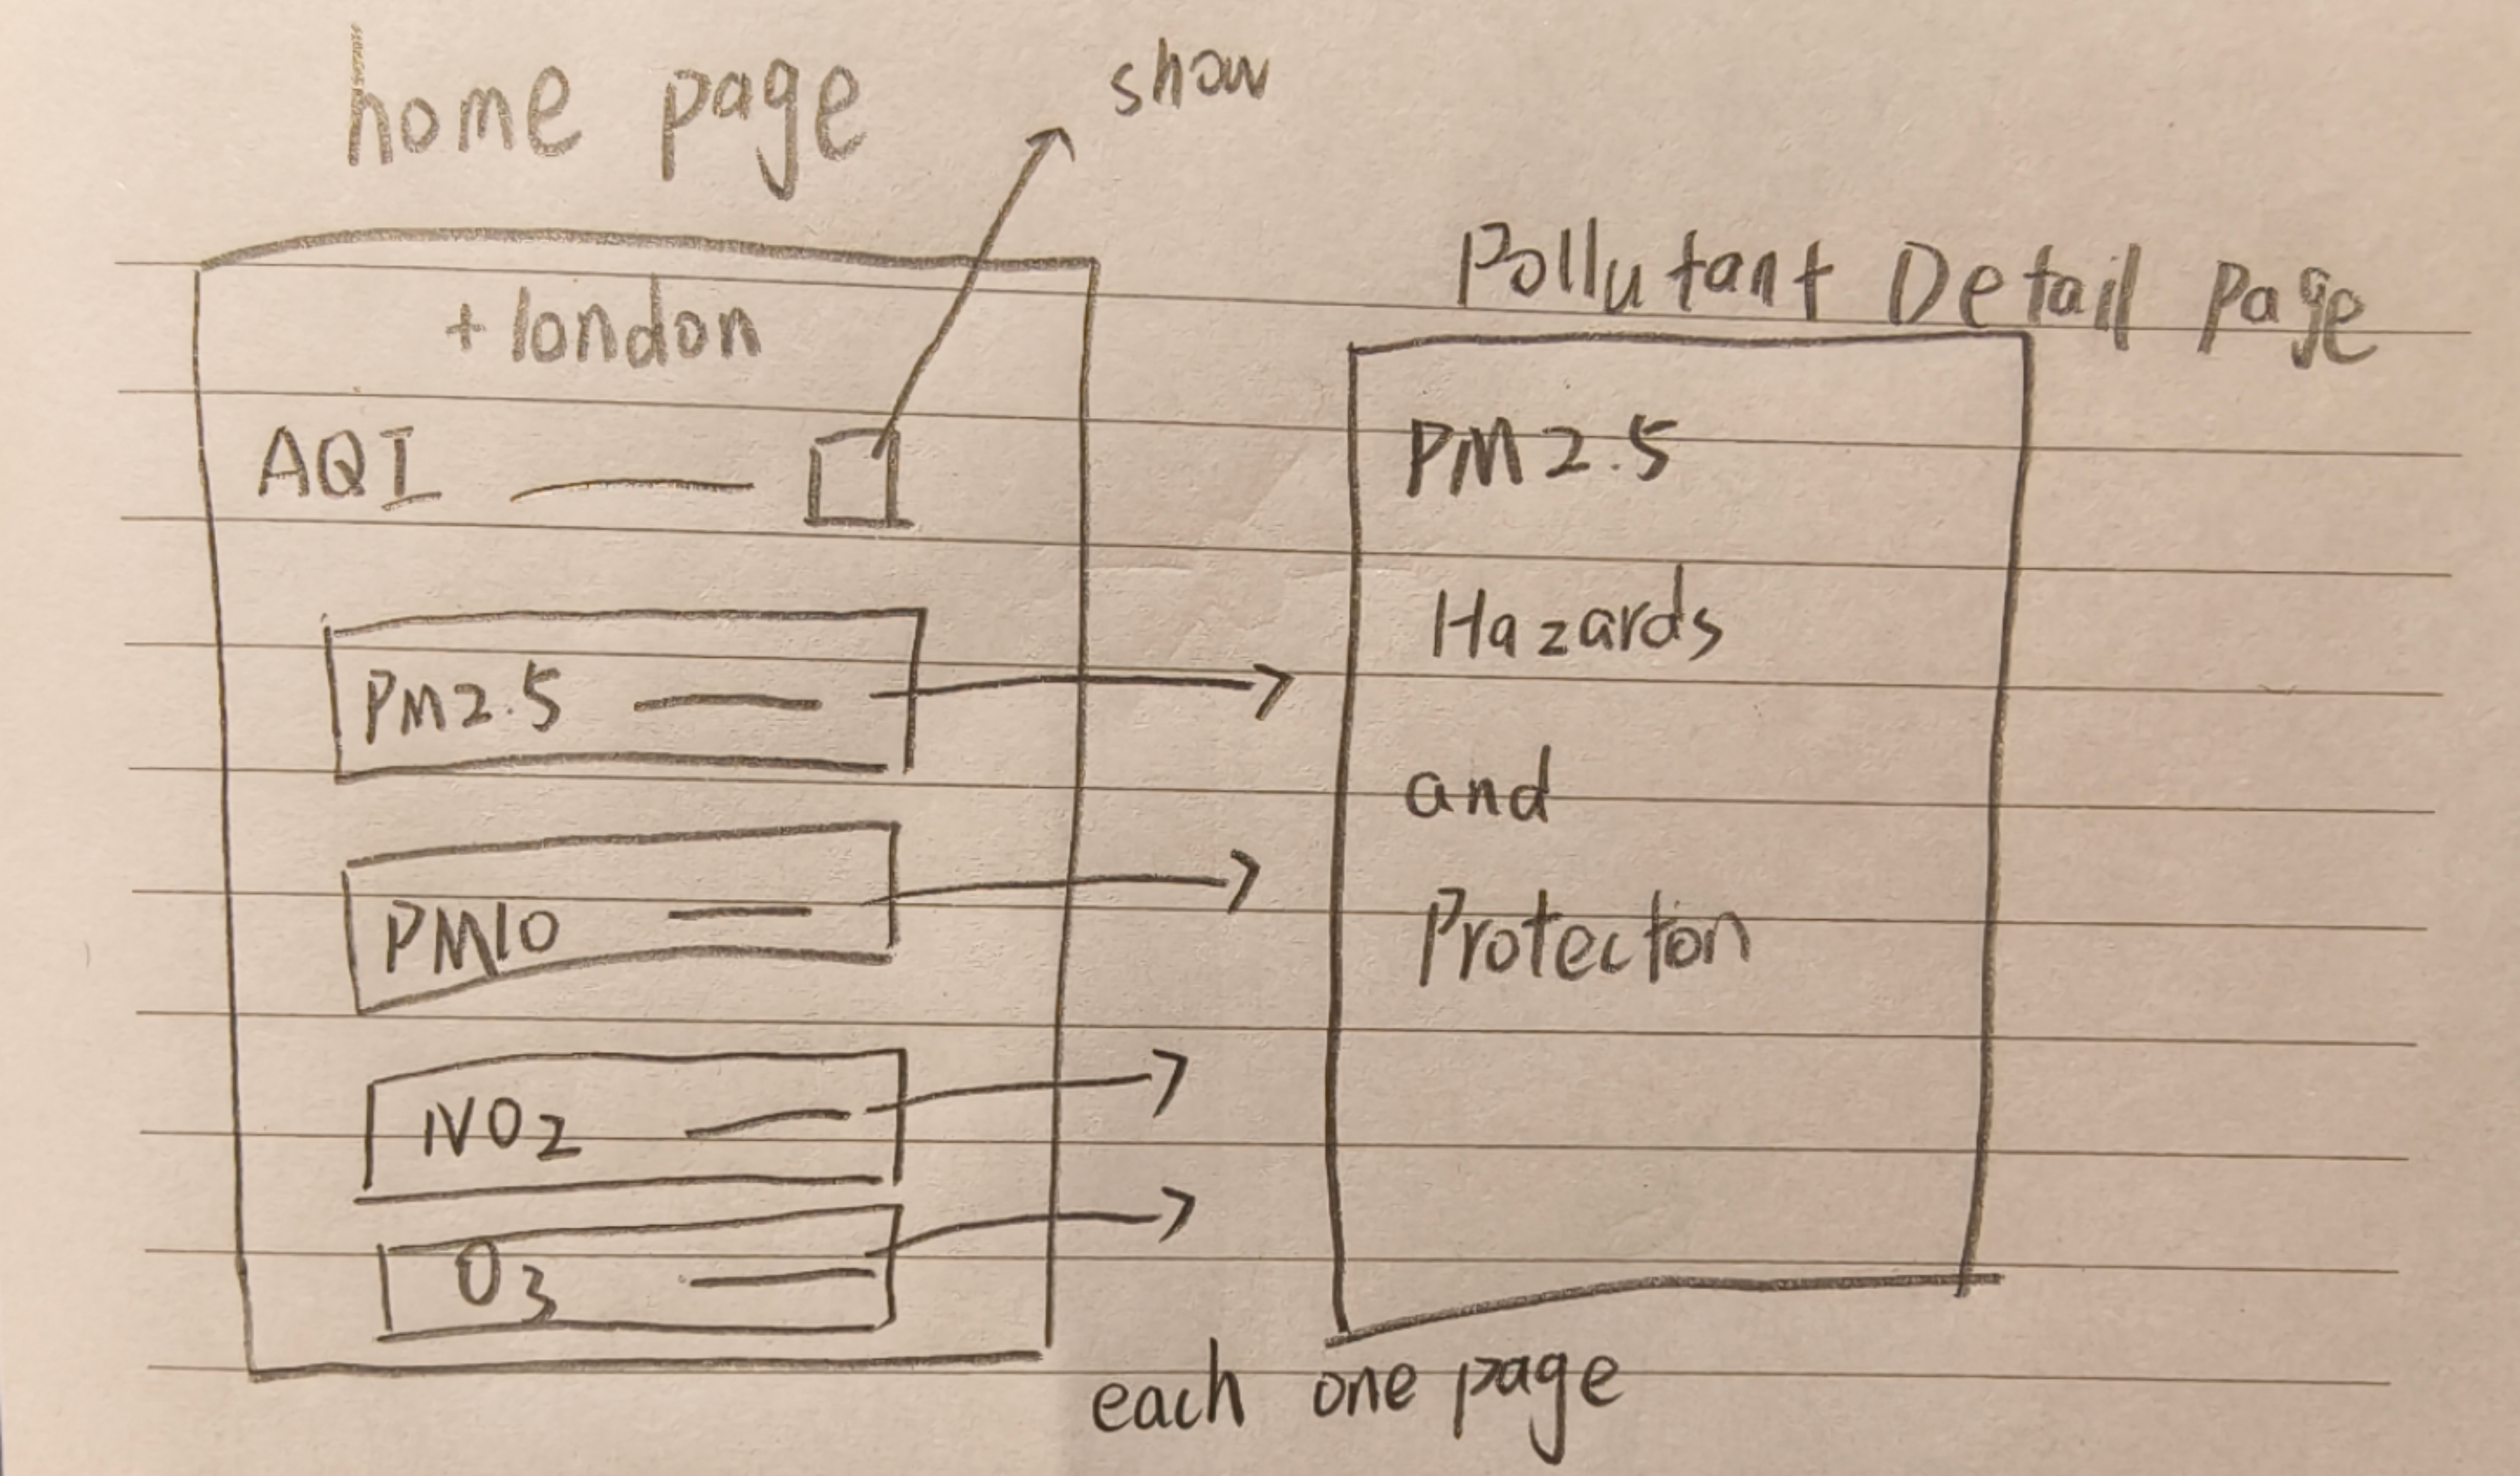 home page
show
+ london
AQI
PM2.5
PM10
NO2
O3
Pollutant Detail Page
PM2.5
Hazards
and
Protecton
each one page